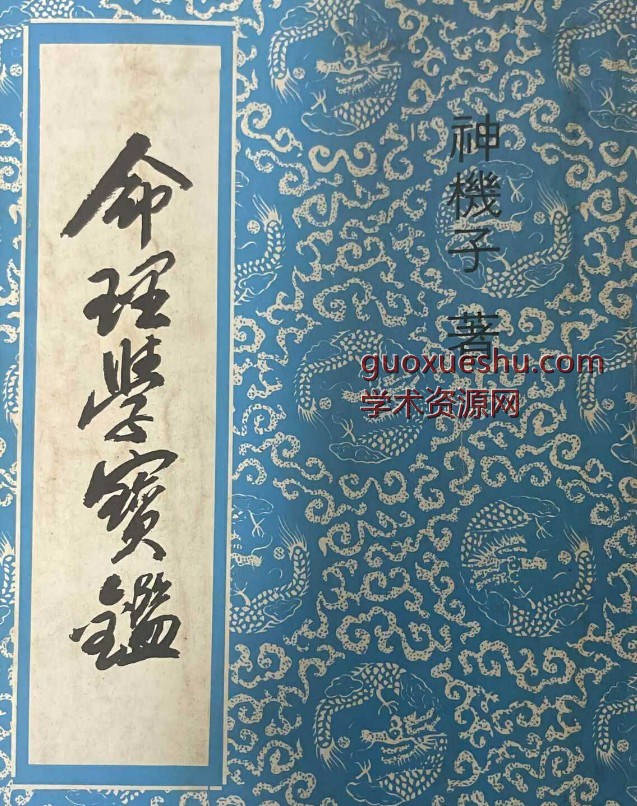 命理學寶鑑
神機子 著
guoxueshu.com
学术资源网